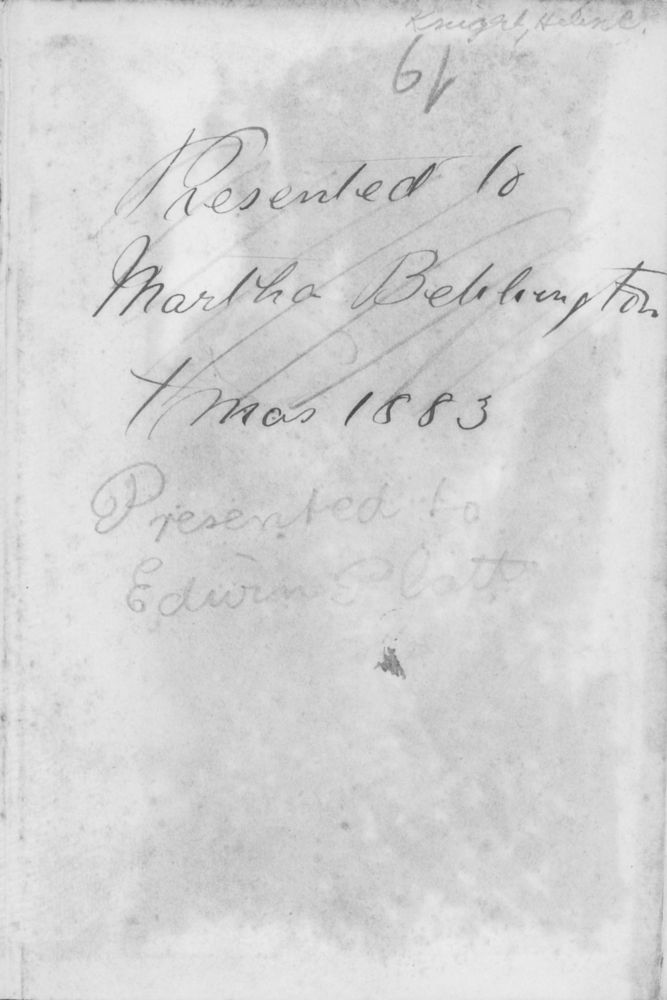 Knight, Helen C.
61
Presented to
Martha Bebbington
Xmas 1883
Presented to
Edwin Platt